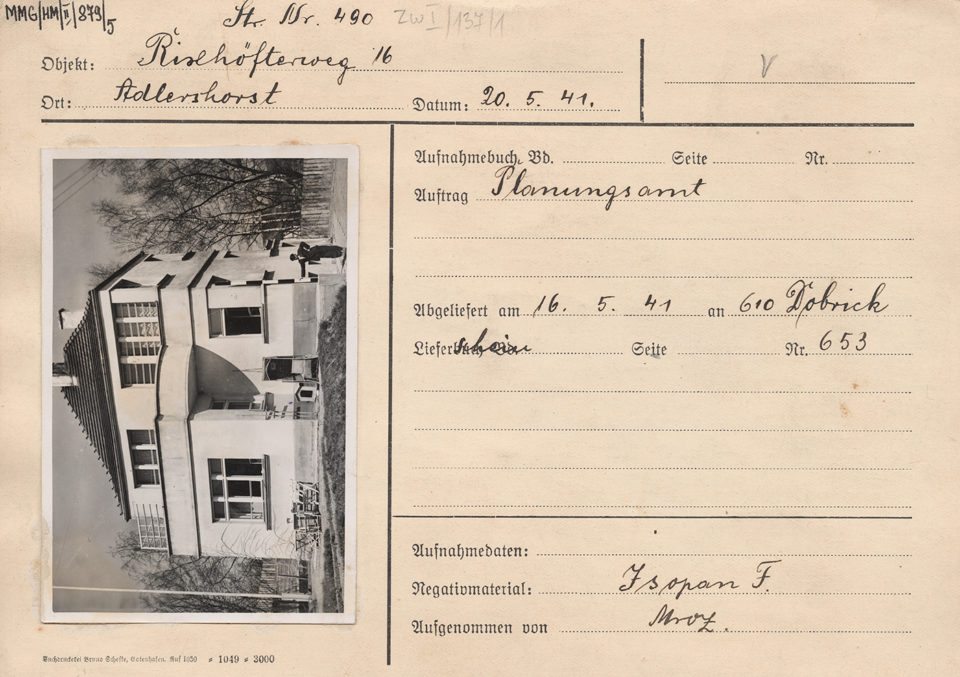 MMG/HM/II/879/5
Str. Nr. 490
ZW I/137/1
Objekt: Rixhöfterweg 16
Ort: Adlershorst
Datum: 20. 5. 41.
V
Aufnahmebuch, Bd. Seite Nr.
Auftrag Planungsamt
Abgeliefert am 16. 5. 41 an 610 Dobrick
Lieferschein Seite Nr. 653
Aufnahmedaten:
Negativmaterial: Isopan F.
Aufgenommen von Mroz.
Buchdruckerei Bruno Scheffe, Gotenhafen. Ruf 1050 * 1049 * 3000